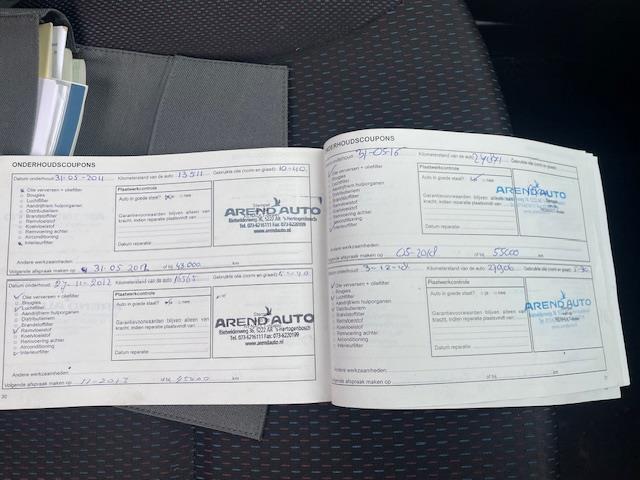 ONDERHOUDSCOUPONS
Datum onderhoud 31-05-2011 Kilometerstand van de auto 13511 Gebruikte olie (norm en graad) 10-40
Olie verversen + oliefilter
Bougies
Luchtfilter
Aandrijfriem hulporganen
Distributieriem
Brandstoffilter
Remvloeistof
Koelvloeistof
Remvoering achter
Airconditioning
Interieurfilter
Plaatwerkcontrole
Auto in goede staat?
Garantievoorwaarden blijven alleen van kracht, indien reparatie plaatsvindt van:
Datum reparatie:
Stempel
AREND AUTO
Rietveldenweg 36, 5222 AR 's-Hertogenbosch
Tel. 073-6216111 Fax: 073-6220199
www.arendauto.nl
Andere werkzaamheden:
Volgende afspraak maken op 31 05 2012 of bij 43.000 km
27-11-2012 Kilometerstand van de auto Gebruikte olie (norm en graad)
Olie verversen + oliefilter
Bougies
Luchtfilter
Aandrijfriem hulporganen
Distributieriem
Brandstoffilter
Remvloeistof
Koelvloeistof
Remvoering achter
Airconditioning
Interieurfilter
Plaatwerkcontrole
Auto in goede staat?
Garantievoorwaarden blijven alleen van kracht, indien reparatie plaatsvindt van:
Datum reparatie:
AREND AUTO
Rietveldenweg 36, 5222 AR 's-Hertogenbosch
Tel. 073-6216111 Fax: 073-6220199
www.arendauto.nl
Andere werkzaamheden:
Volgende afspraak maken op 11-2013 of bij 45000 km
30
ONDERHOUDSCOUPONS
onderhoud 31-05-16 Kilometerstand van de auto Gebruikte olie (norm en graad)
Olie verversen + oliefilter
Bougies
Luchtfilter
Aandrijfriem hulporganen
Distributieriem
Brandstoffilter
Remvloeistof
Koelvloeistof
Remvoering achter
Airconditioning
Interieurfilter
Plaatwerkcontrole
Auto in goede staat?
Garantievoorwaarden blijven alleen van kracht, indien reparatie plaatsvindt van:
Datum reparatie:
AREND AUTO
Andere werkzaamheden:
Volgende afspraak maken op 05-2018 of bij 55000 km
onderhoud Kilometerstand van de auto Gebruikte olie (norm en graad)
Olie verversen + oliefilter
Bougies
Luchtfilter
Aandrijfriem hulporganen
Distributieriem
Brandstoffilter
Remvloeistof
Koelvloeistof
Remvoering achter
Airconditioning
Interieurfilter
Plaatwerkcontrole
Auto in goede staat? ja nee
Garantievoorwaarden blijven alleen van kracht, indien reparatie plaatsvindt van:
Datum reparatie:
AREND AUTO
Andere werkzaamheden:
Volgende afspraak maken op of bij km